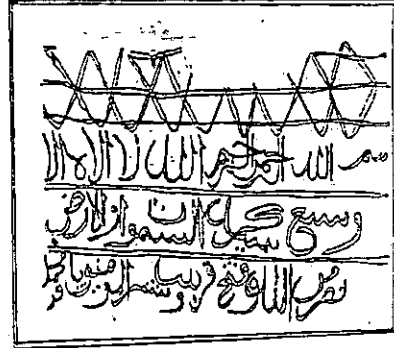 بسم الله الرحمن الرحيم الله لا اله الا
وسع كرسيه السموات والارض
نصر من الله وفتح قريب وبشر المؤمنين يا محمد